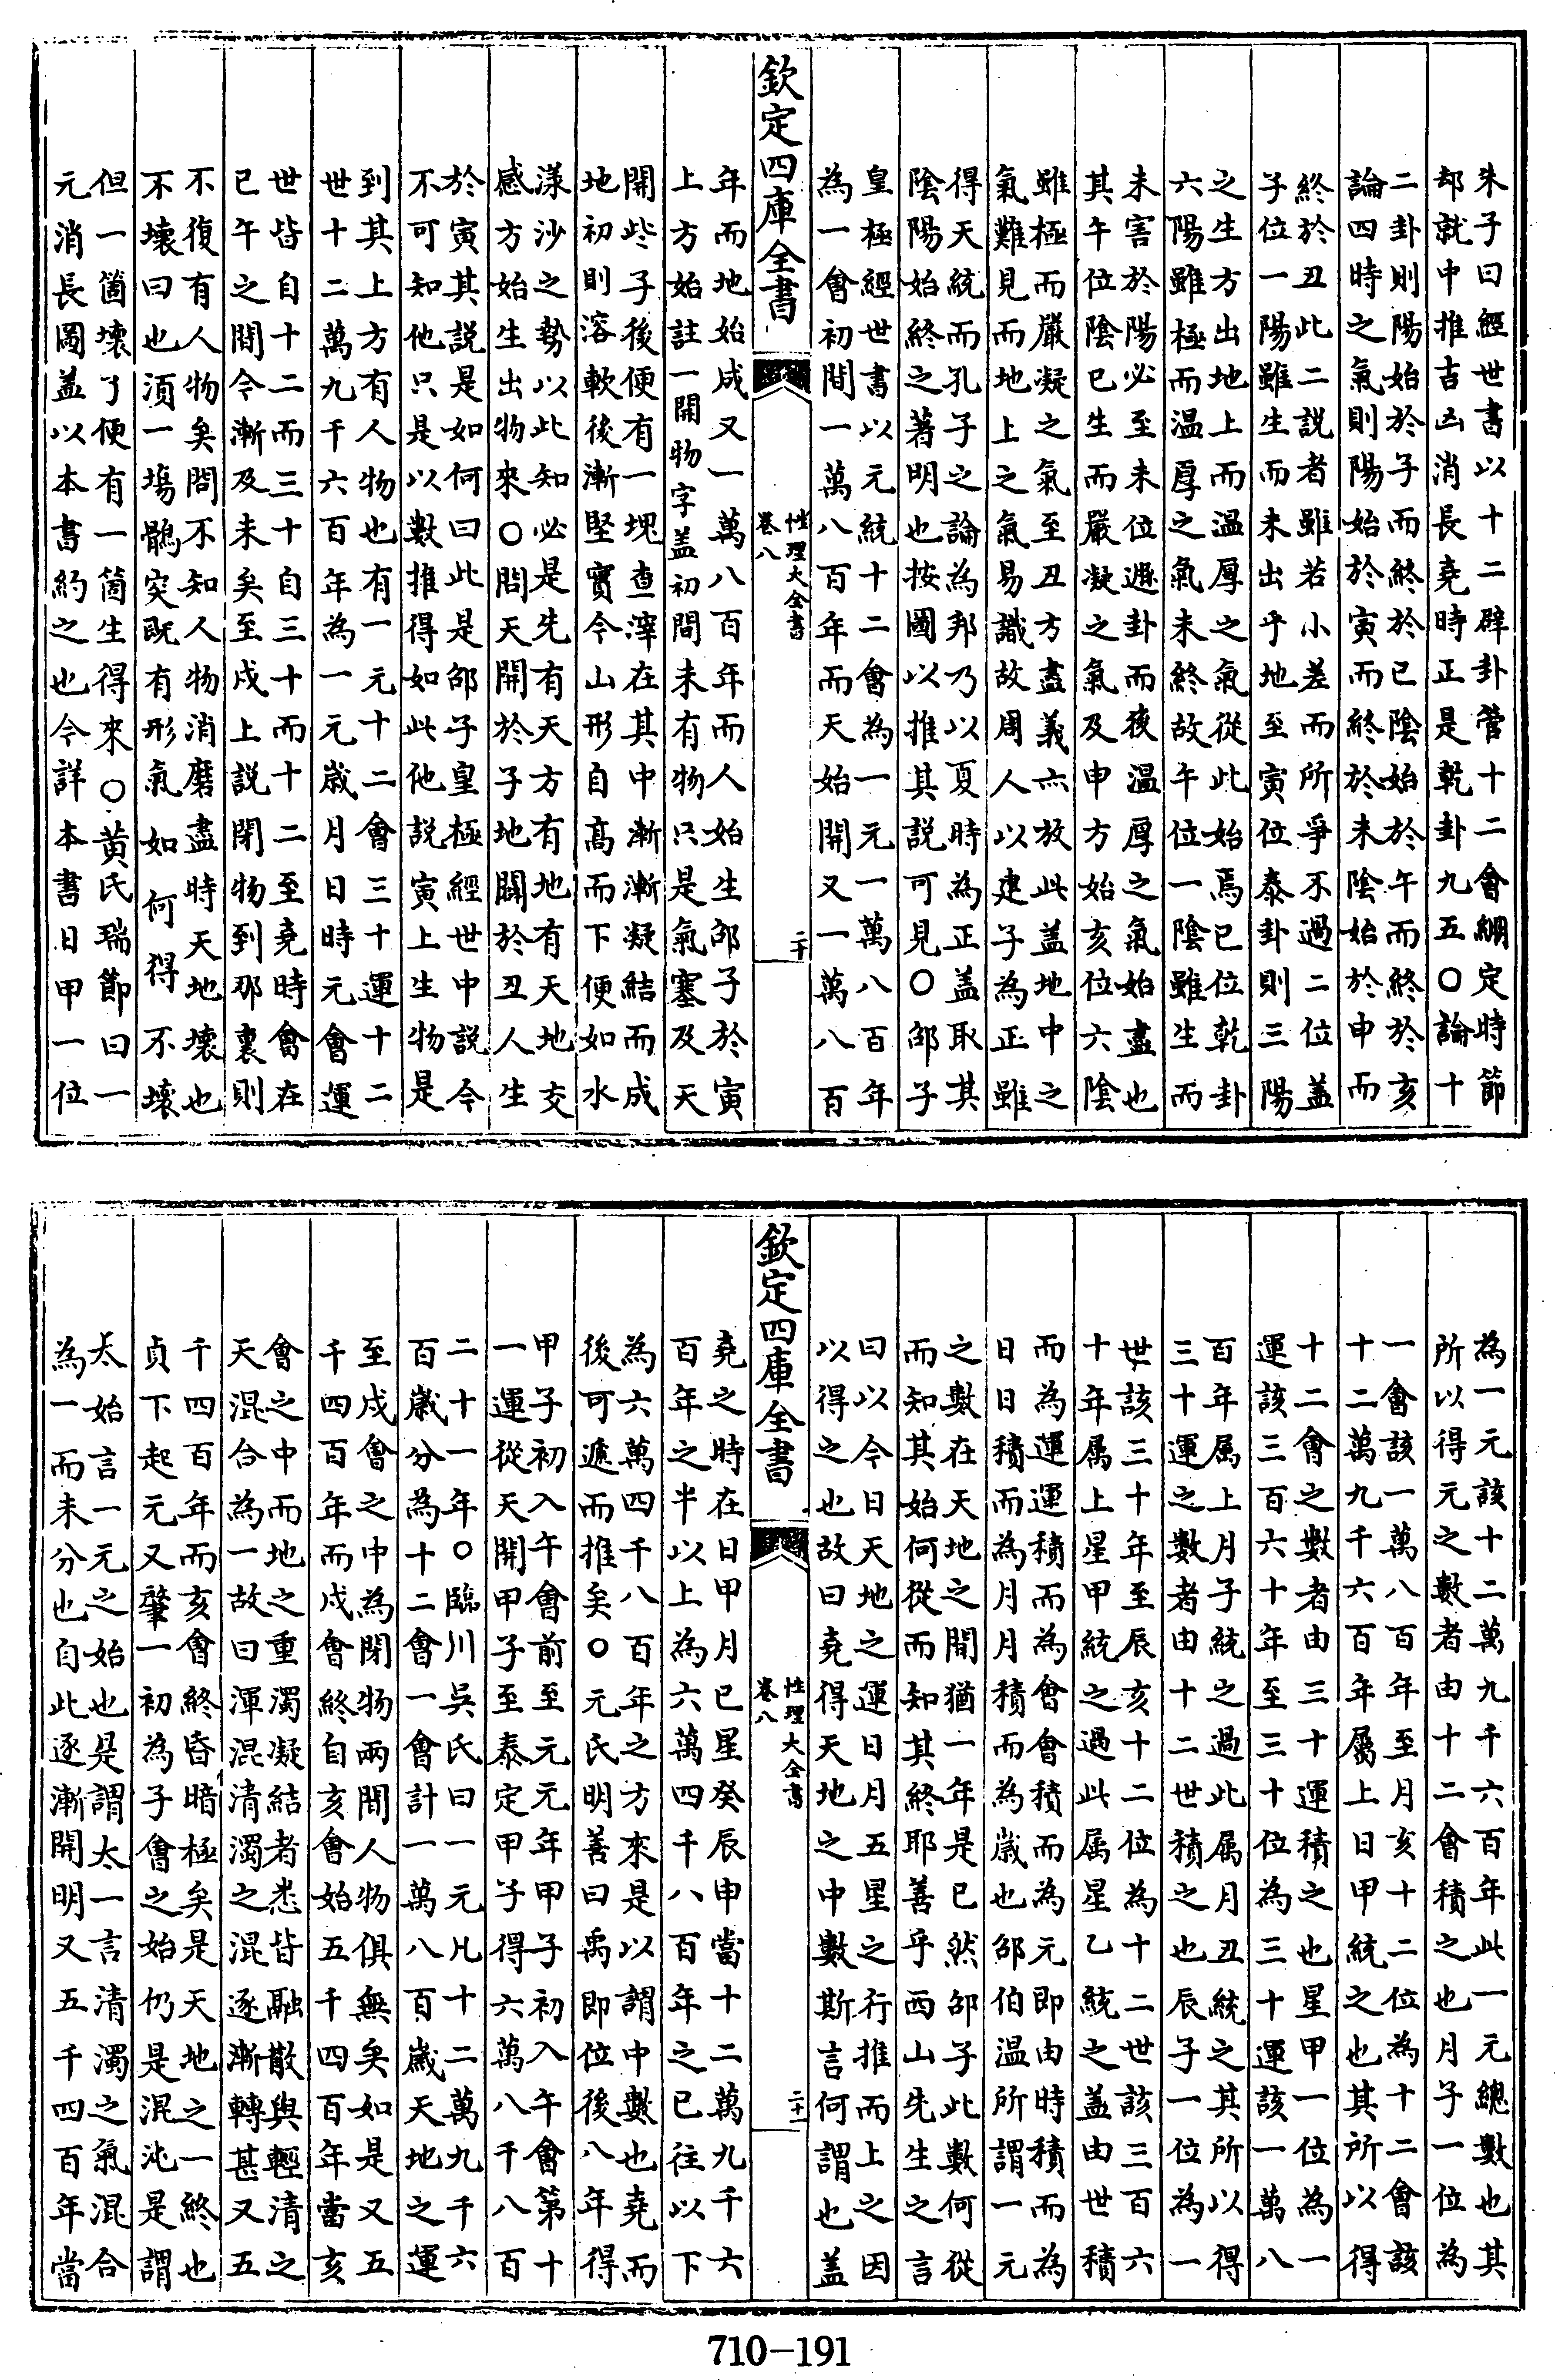 朱子曰經世書以十二辟卦管十二會綳定時節
却就中推吉凶消長堯時正是乾卦九五○論十
二卦則陽始於子而終於已陰始於午而終於亥
論四時之氣則陽始於寅而終於未陰始於申而
終於丑此二説者雖若小差而所爭不過二位盖
子位一陽雖生而未出乎地至寅位泰卦則三陽
之生方出地上而温厚之氣從此始焉已位乾卦
六陽雖極而温厚之氣未終故午位一陰雖生而
未害於陽必至未位遯卦而後温厚之氣始盡也
其午位陰已生而嚴凝之氣及申方始亥位六陰
雖極而嚴凝之氣至丑方盡義亦放此盖地中之
氣難見而地上之氣易識故周人以建子為正雖
得天統而孔子之論為邦乃以夏時為正盖取其
陰陽始終之著明也按圖以推其説可見○邵子
皇極經世書以元統十二會為一元一萬八百年
為一會初間一萬八百年而天始開又一萬八百
欽定四庫全書
性理大全書
卷八
二十
年而地始成又一萬八百年而人始生邵子於寅
上方始註一開物字盖初間未有物只是氣塞及天
開些子後便有一塊查滓在其中漸漸凝結而成
地初則溶軟後漸堅實今山形自髙而下便如水
漾沙之勢以此知必是先有天方有地有天地交
感方始生出物來○問天開於子地闢於丑人生
於寅其説是如何曰此是邵子皇極經世中説今
不可知他只是以數推得如此他説寅上生物是
到其上方有人物也有一元十二會三十運十二
世十二萬九千六百年為一元歳月日時元會運
世皆自十二而三十自三十而十二至堯時會在
已午之間今漸及未矣至戍上説閉物到那裏則
不復有人物矣問不知人物消磨盡時天地壞也
不壞曰也須一塲鶻突既有形氣如何得不壞
但一箇壞了便有一箇生得來○黄氏瑞節曰一
元消長圖盖以本書約之也今詳本書日甲一位
為一元該十二萬九千六百年此一元總數也其
所以得元之數者由十二會積之也月子一位為
一會該一萬八百年至月亥十二位為十二會該
十二萬九千六百年屬上日甲統之也其所以得
十二會之數者由三十運積之也星甲一位為一
運該三百六十年至三十位為三十運該一萬八
百年屬上月子統之過此属月丑統之其所以得
三十運之數者由十二世積之也辰子一位為一
世該三十年至辰亥十二位為十二世該三百六
十年属上星甲統之過此属星乙統之盖由世積
而為運運積而為會會積而為元即由時積而為
日日積而為月月積而為歳也邵伯温所謂一元
之數在天地之間猶一年是已然邵子此數何從
而知其始何從而知其終耶善乎西山先生之言
曰以今日天地之運日月五星之行推而上之因
以得之也故曰堯得天地之中數斯言何謂也盖
欽定四庫全書
性理大全書
卷八
二十一
堯之時在日甲月已星癸辰申當十二萬九千六
百年之半以上為六萬四千八百年之已往以下
為六萬四千八百年之方來是以謂中數也堯而
後可遞而推矣○元氏明善曰禹即位後八年得
甲子初入午會前至元元年甲子初入午會第十
一運從天開甲子至泰定甲子得六萬八千八百
二十一年○臨川吳氏曰一元凡十二萬九千六
百歳分為十二會一會計一萬八百歳天地之運
至戍會之中為閉物兩間人物俱無矣如是又五
千四百年而戍會終自亥會始五千四百年當亥
會之中而地之重濁凝結者悉皆融散與輕清之
天混合為一故曰渾混清濁之混逐漸轉甚又五
千四百年而亥會終昏暗極矣是天地之一終也
貞下起元又肇一初為子會之始仍是混沌是謂
太始言一元之始也是謂太一言清濁之氣混合
為一而未分也自此逐漸開明又五千四百年當
710-191